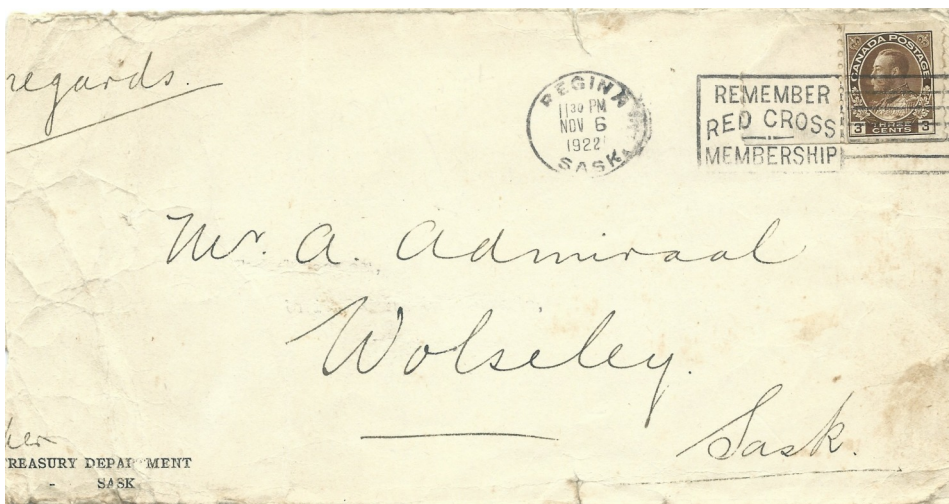 regards.
REGINA
11 30 PM
NOV 6
1922
SASK.
REMEMBER
RED CROSS
MEMBERSHIP
CANADA POSTAGE
3 THREE CENTS 3
Mr. A. Admiraal
Wolseley.
Sask.
TREASURY DEPARTMENT
- SASK